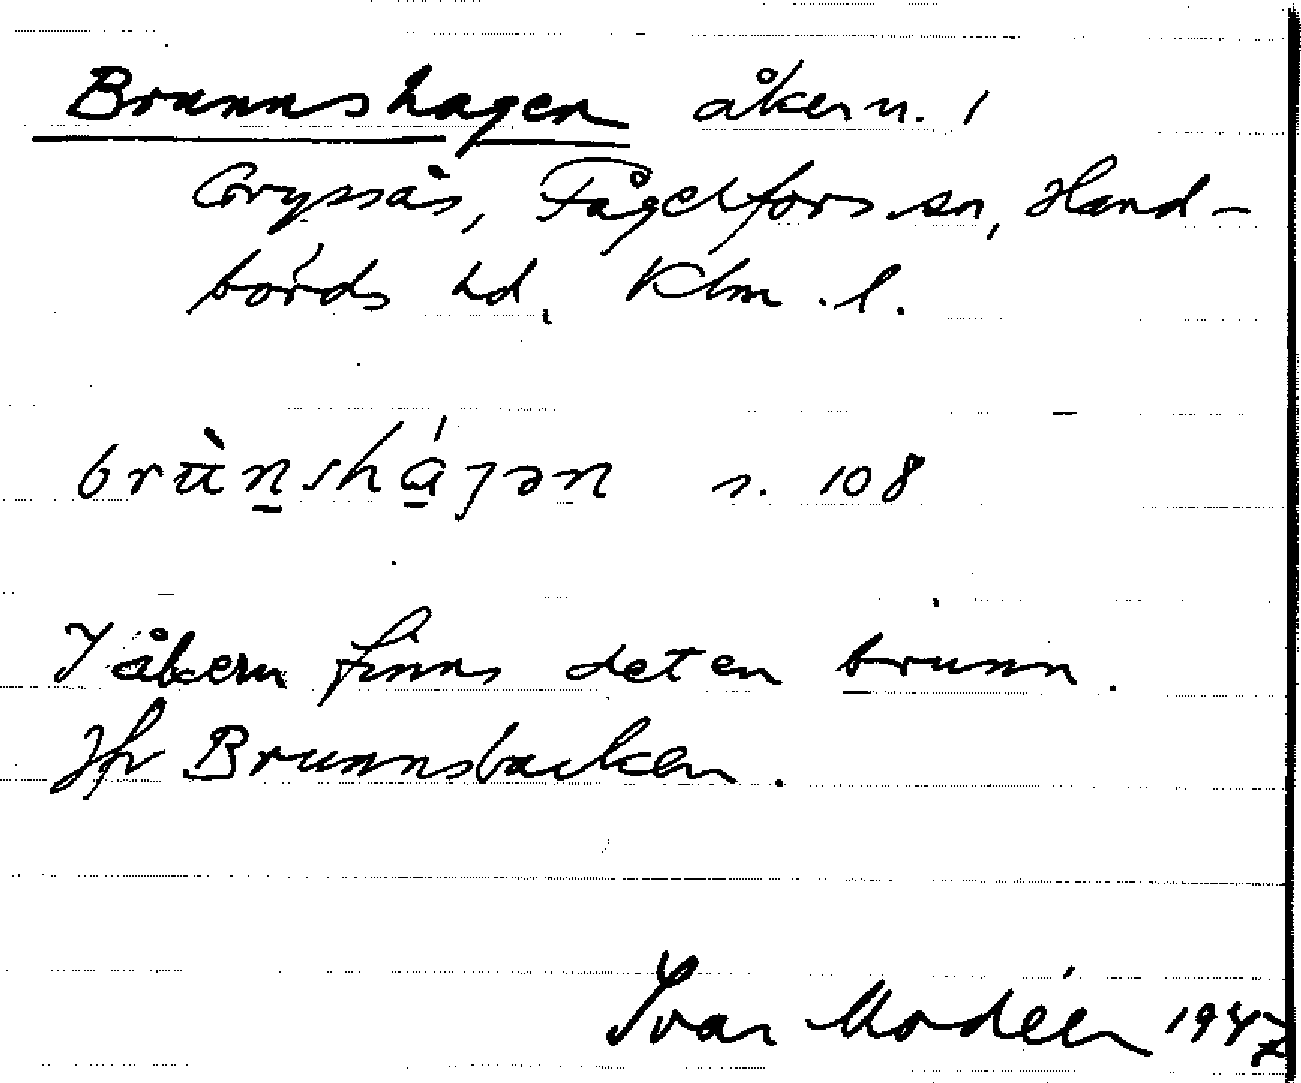 Brunnshagen åkern. 1
Gryssås, Fågelfors sn, Hand-
börds hd, Klm. l.
brùn̠shá̠ɡən n. 108
I åkern finns det en brunn.
Jfr Brunnsbacken.
Ivar Modéer 1947